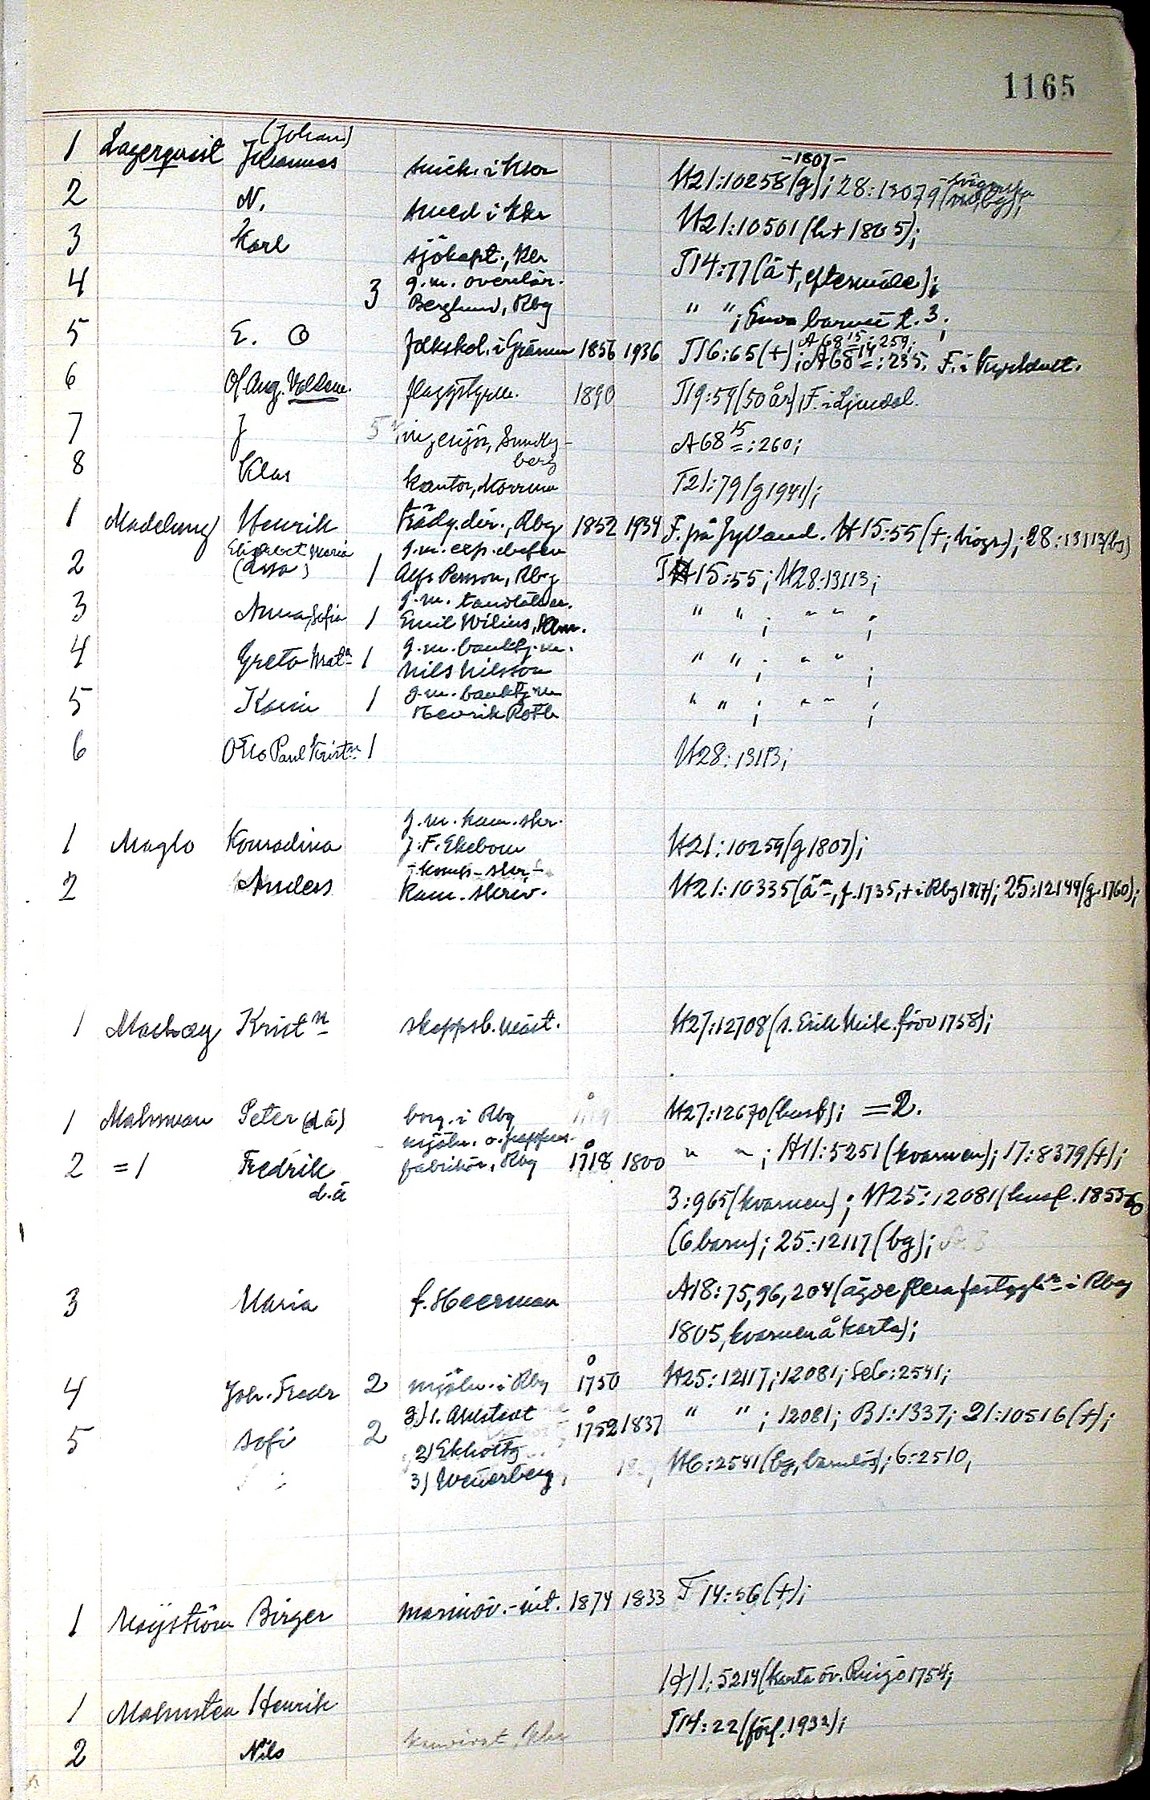 1165
1 Lagerquist (Johan) Johannes snick. i Khr H21:10258(g); -1807- 28:13079
2 N. smed i Khr H21:10501(h+1805);
3 Karl sjökapt., Khr T14:77(ä+, eftermäle);
4 3 g.m. överlär. Berglund, Rbg " "; Enva barnet t. 3;
5 E. O folkskol. i Grämm 1856 1936 T16:65(+); A68 15:259; A68 14:235. F. i Kyrkhult.
6 Of. Aug. Valdem. flaggstyrm. 1890 T19:59(50 år) F. i Ljuodal.
7 J 5 ingenjör, Sundbyberg A68 15:260;
8 Klas kantor, Mörrum T21:79(g1941);
1 Madelung Henrik trädg.dir., Rbg 1852 1934 F. på Jylland. H15:55(+; biogr.); 28:13113(bg)
2 Elisabet Maria (Assa) 1 g.m. exp.chefen Alfr Persson, Rbg T15:55; H28:13113;
3 Anna Sofia 1 g.m. tandläkar. Emil Wilius, " " ; " " ;
4 Greta Mat 1 g.m. banktj.m. Nils Nilsson " " ; " " ;
5 Karin 1 g.m. banktj.m Henrik Roth " " ; " " ;
6 Otto Paul Krist:n 1 H28:13113;
1 Maglo Konradina g.m. kam.skr. J.F. Ekebom H21:10259(g1807);
2 Anders kam.skriv. H21:10335(ä, f.1735, + i Rbg 1817); 25:12144(g.1760);
1 Mackay Krist:n skeppsb.mäst. H27:12708(s. Erik Nik. född 1758);
1 Malmman Peter (d ä) borg. i Rbg H27:12670(husf); =2.
2 =1 Fredrik d.ä mjöln. o. fabrikör, Rbg 1718 1800 " "; H11:5251(kvarnen); 17:8379(+);
3:965(kvarnen); H25:12081(husf.
(6 barn); 25:12117(bg);
3 Maria f. Heerman A18:75,96,204(ägde flera fastygh:r i Rbg
1805, kvarnen å karta);
4 Joh. Fredr 2 mjöln. i Rbg 1750 H25:12117; 12081; Se6:2541;
5 Sofi 2 1. Ahlstedt 1752 1837 " "; 12081; B1:1337; 21:10516(+);
2) Ekholtz
3) Wennerberg, H6:2541(bg, barnlös); 6:2510,
1 Maijström Birger marinöv.-int. 1874 1833 T14:56(+);
H11:5214(karta öv. Ringö 1754;
1 Malmsten Henrik
T14:22(förf. 1932);
2 Nils Khr